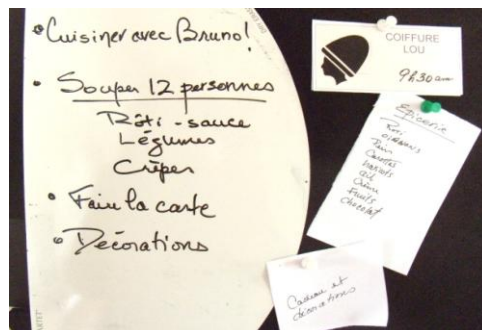 • Cuisiner avec Bruno!
• Souper 12 personnes
Rôti - sauce
Légumes
Crêpes
• Faire la carte
• Décorations
COIFFURE
LOU
9h30 am
Épicerie
Rôti
oignons
Pain
Carottes
haricots
Ail
Crème
Fruits
Chocolat
Cadeau et
décorations